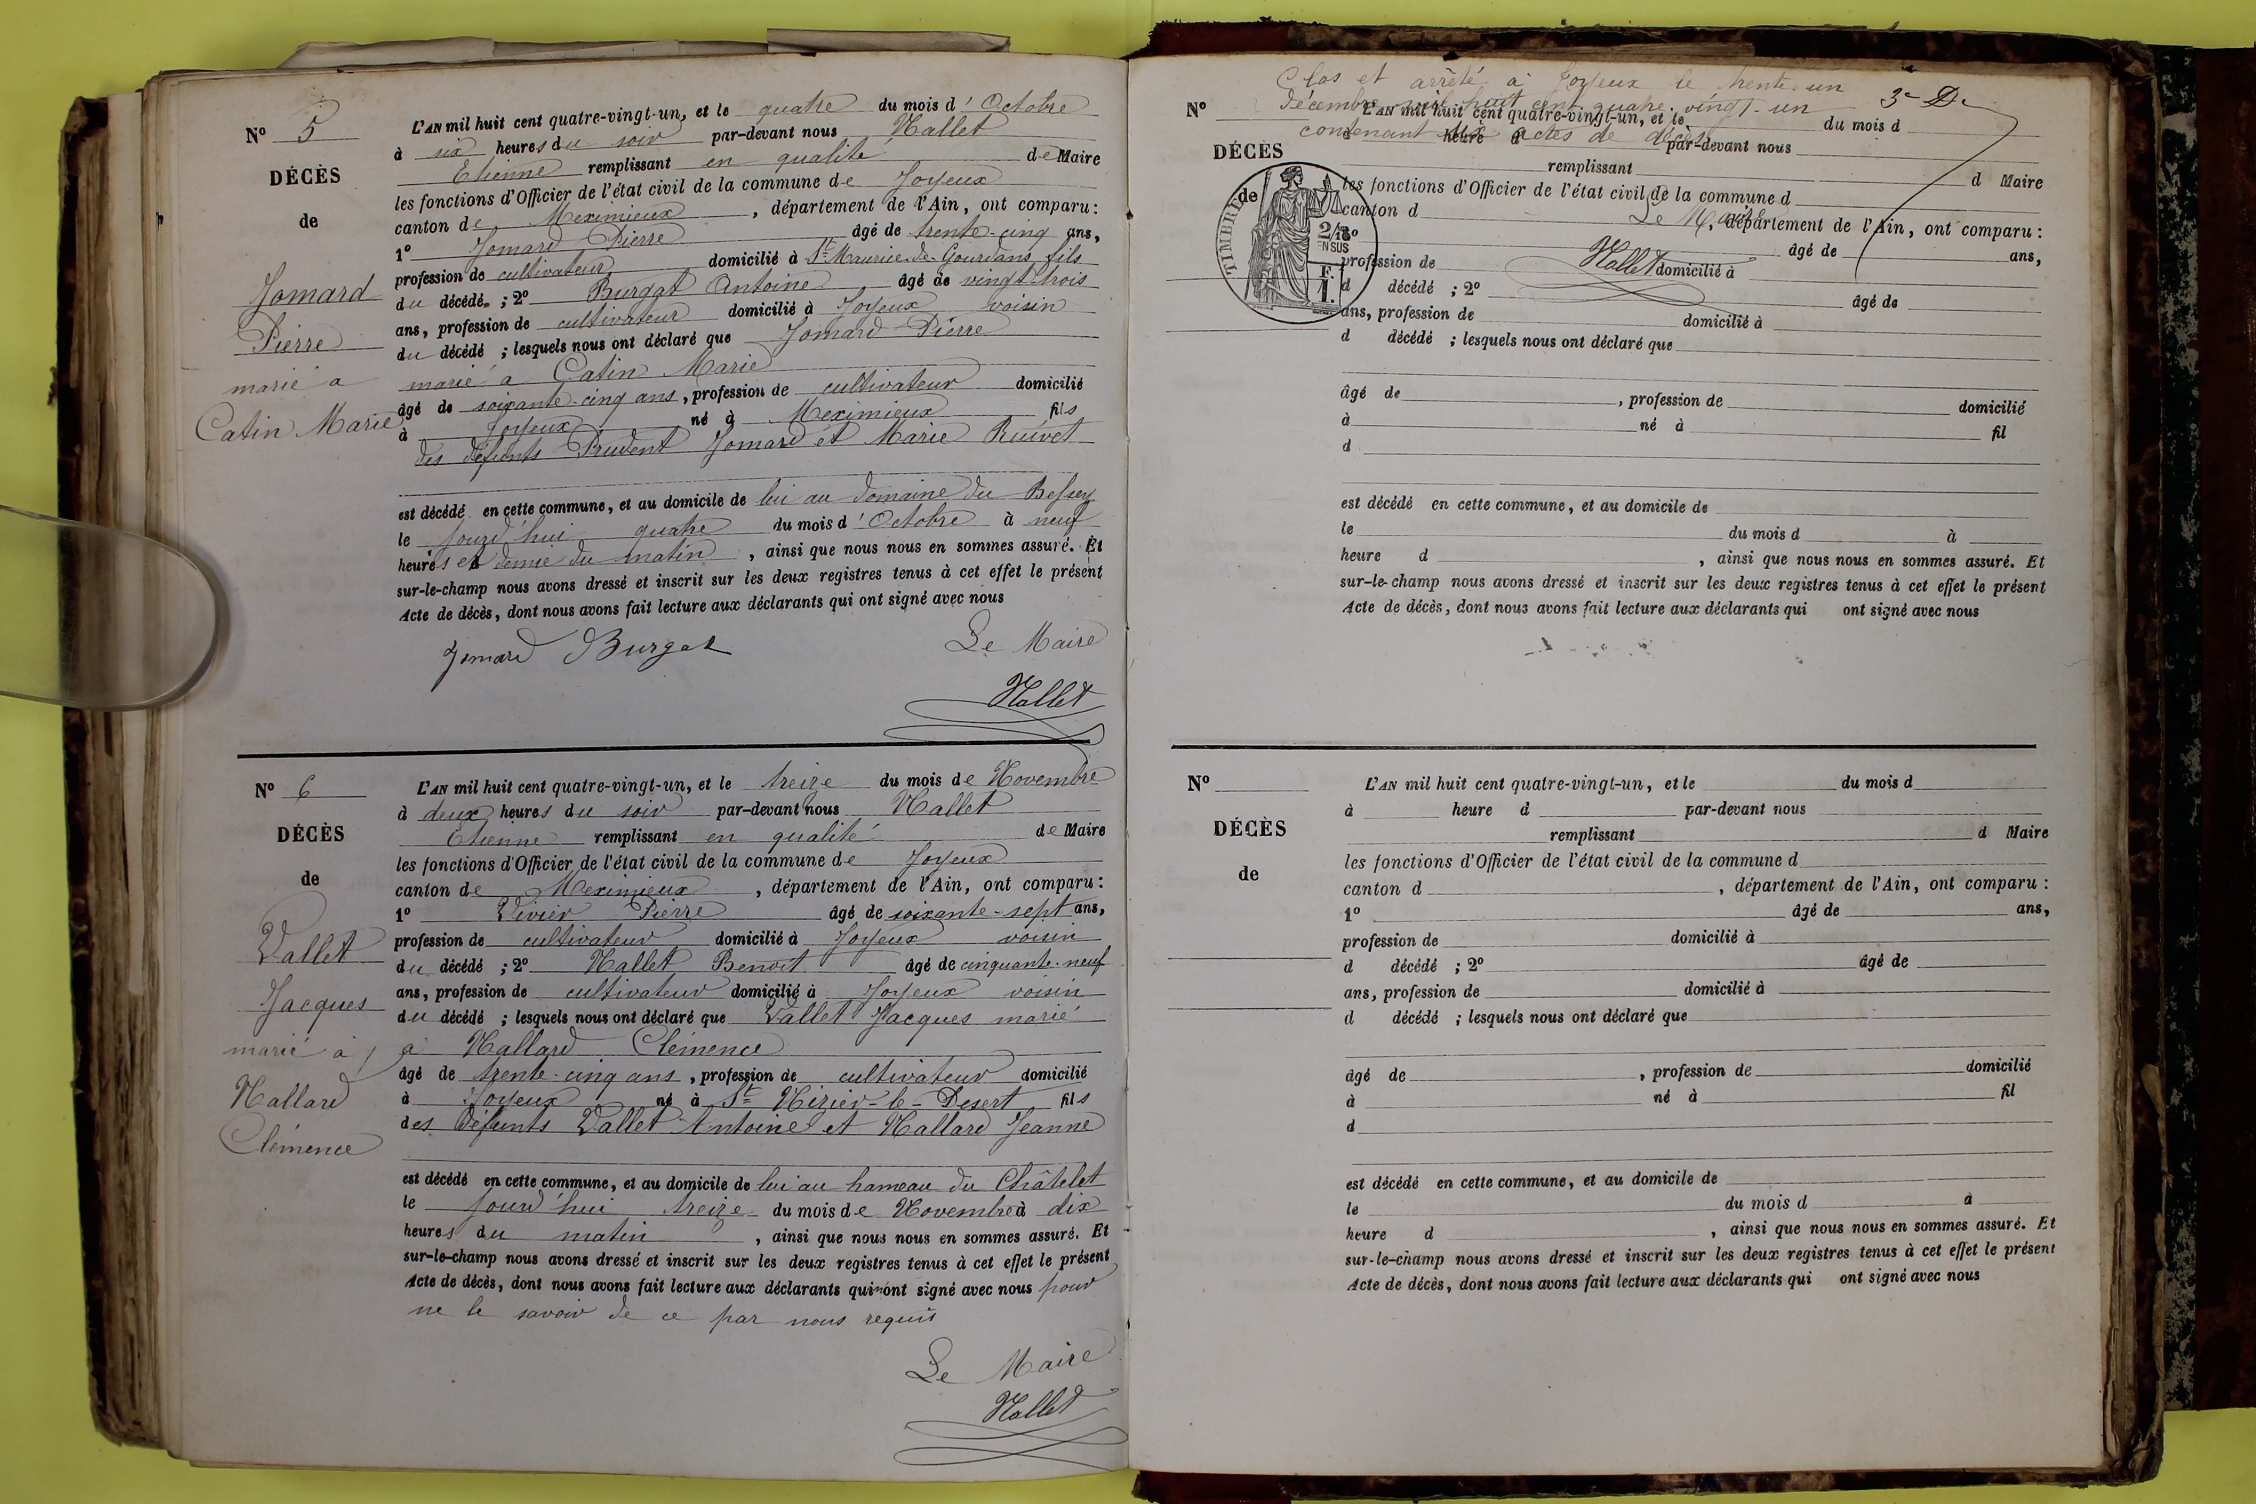 N° 5
DÉCÈS
de
Jomard
Pierre
marié à
Catin Marie
L'AN mil huit cent quatre-vingt-un, et le quatre du mois d'Octobre
à six heures du soir par-devant nous Nallet
Etienne remplissant en qualité de Maire
les fonctions d'Officier de l'état civil de la commune de Joyeux
canton de Meximieux, département de l'Ain, ont comparu:
1° Jomard Pierre âgé de trente-cinq ans,
profession de cultivateur domicilié à St Maurice-de-Gourdans fils
du décédé ; 2° Burgat Antoine âgé de vingt-trois
ans, profession de cultivateur domicilié à Joyeux voisin
du décédé ; lesquels nous ont déclaré que Jomard Pierre
marié à Catin Marie
âgé de soixante-cinq ans, profession de cultivateur domicilié
à Joyeux né à Meximieux fils
des défunts Prudent Jomard et Marie Ruivet
est décédé en cette commune, et au domicile de lui au domaine du Bessey
le jourd'hui quatre du mois d'Octobre à neuf
heures et demie du matin, ainsi que nous nous en sommes assuré. Et
sur-le-champ nous avons dressé et inscrit sur les deux registres tenus à cet effet le présent
Acte de décès, dont nous avons fait lecture aux déclarants qui ont signé avec nous
Jomard Burgat Le Maire
Nallet
N° 6
DÉCÈS
de
Vallet
Jacques
marié à
Nallard
Clémence
L'AN mil huit cent quatre-vingt-un, et le treize du mois de Novembre
à deux heures du soir par-devant nous Nallet
Etienne remplissant en qualité de Maire
les fonctions d'Officier de l'état civil de la commune de Joyeux
canton de Meximieux, département de l'Ain, ont comparu:
1° Vivier Pierre âgé de soixante-sept ans,
profession de cultivateur domicilié à Joyeux voisin
du décédé ; 2° Nallet Benoit âgé de cinquante-neuf
ans, profession de cultivateur domicilié à Joyeux voisin
du décédé ; lesquels nous ont déclaré que Vallet Jacques marié
à Nallard Clémence
âgé de trente-cinq ans, profession de cultivateur domicilié
à Joyeux né à St Nizier-le-Désert fils
des défunts Vallet Antoine et Nallard Jeanne
est décédé en cette commune, et au domicile de lui au hameau du Châtelet
le jourd'hui treize du mois de Novembre à dix
heures du matin, ainsi que nous nous en sommes assuré. Et
sur-le-champ nous avons dressé et inscrit sur les deux registres tenus à cet effet le présent
Acte de décès, dont nous avons fait lecture aux déclarants qui n'ont signé avec nous pour
ne le savoir de ce par nous requis
Le Maire
Nallet
Clos et arrêté à Joyeux le trente-un
Décembre mil huit cent quatre-vingt-un
contenant six actes de décès
Le Maire
Nallet
3e De
TIMBRE
2/10°
EN SUS
F.
1.
N°
DÉCÈS
de
L'AN mil huit cent quatre-vingt-un, et le du mois d
à heure d par-devant nous
remplissant d Maire
les fonctions d'Officier de l'état civil de la commune d
canton d , département de l'Ain, ont comparu :
1° âgé de ans,
profession de domicilié à
d décédé ; 2° âgé de
ans, profession de domicilié à
d décédé ; lesquels nous ont déclaré que
âgé de , profession de domicilié
à né à fil
d
est décédé en cette commune, et au domicile de
le du mois d à
heure d , ainsi que nous nous en sommes assuré. Et
sur-le-champ nous avons dressé et inscrit sur les deux registres tenus à cet effet le présent
Acte de décès, dont nous avons fait lecture aux déclarants qui ont signé avec nous
N°
DÉCÈS
de
L'AN mil huit cent quatre-vingt-un, et le du mois d
à heure d par-devant nous
remplissant d Maire
les fonctions d'Officier de l'état civil de la commune d
canton d , département de l'Ain, ont comparu :
1° âgé de ans,
profession de domicilié à
d décédé ; 2° âgé de
ans, profession de domicilié à
d décédé ; lesquels nous ont déclaré que
âgé de , profession de domicilié
à né à fil
d
est décédé en cette commune, et au domicile de
le du mois d à
heure d , ainsi que nous nous en sommes assuré. Et
sur-le-champ nous avons dressé et inscrit sur les deux registres tenus à cet effet le présent
Acte de décès, dont nous avons fait lecture aux déclarants qui ont signé avec nous